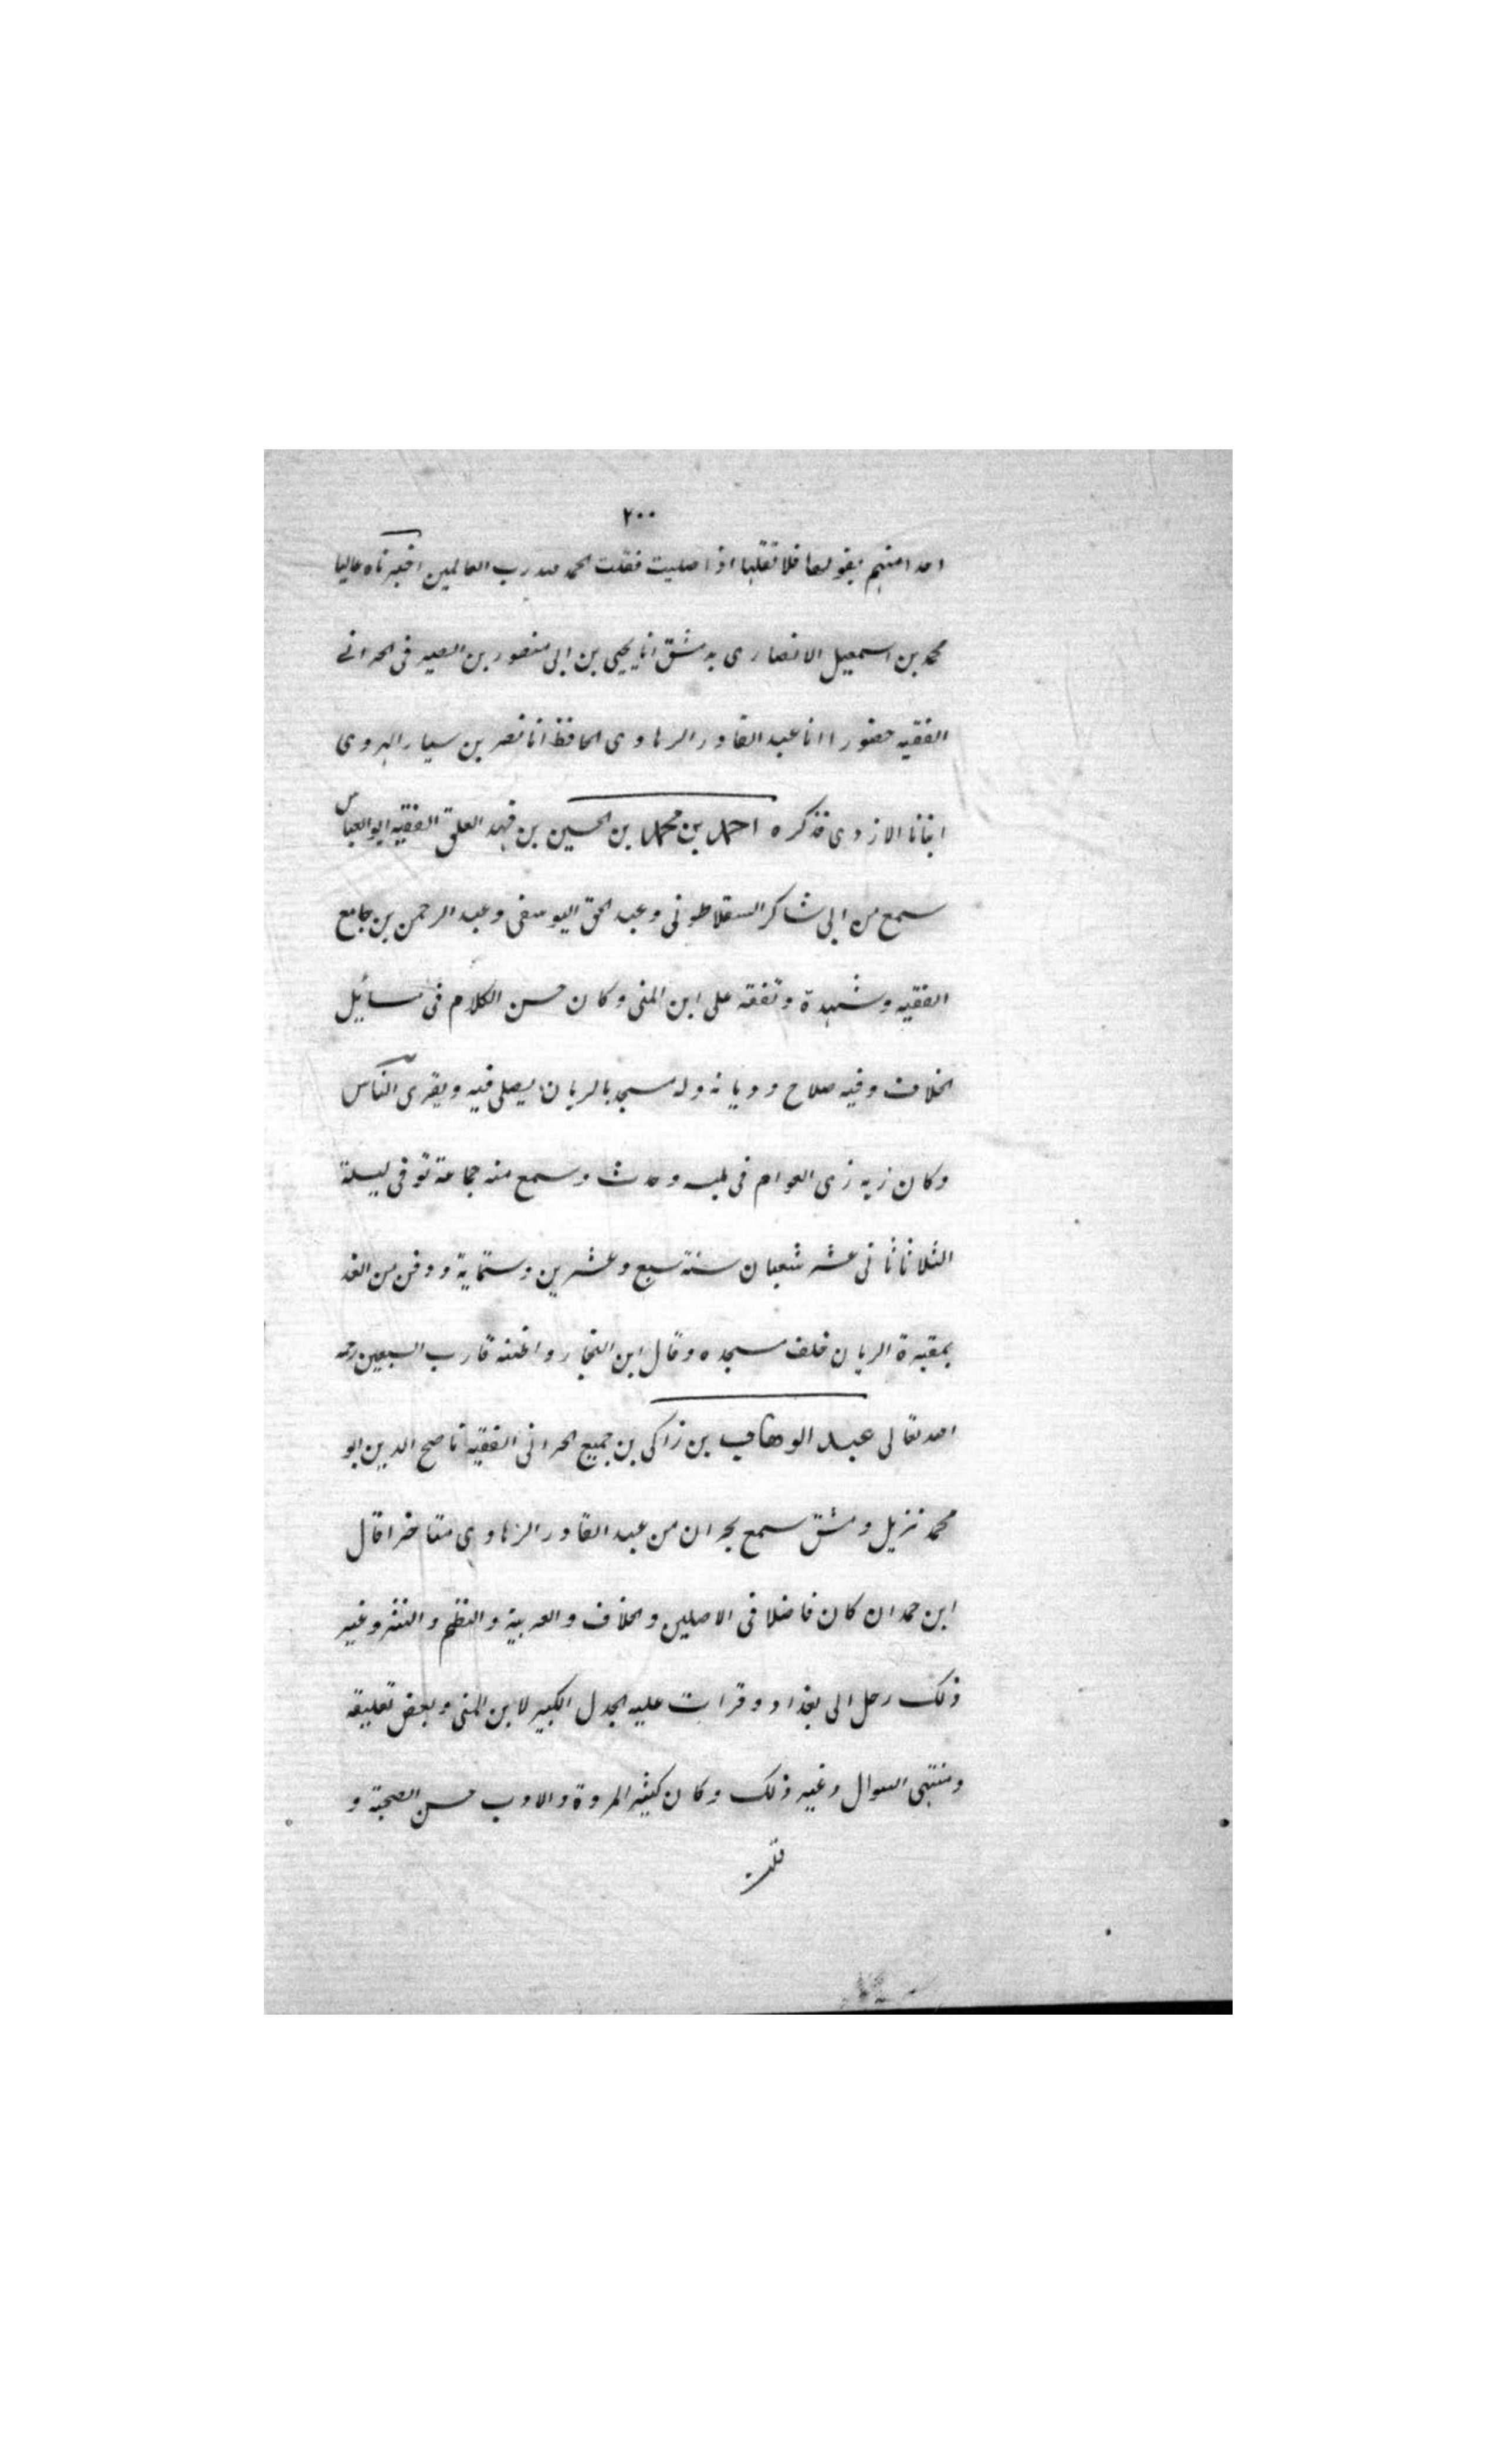 ٢٠٠
احدا منهم يقولها فلا تقلها اذا صليت فقلت الحمد لله رب العالمين اخبرناه عاليا
محمد بن اسمعيل الانصارى بدمشق انا يحيى بن ابى منصور بن الصيرفى الحرانے
الفقيه حضورا انا عبد القادر الرهاوى الحافظ انا نصر بن سيار الهروى
انبانا الازدى فذكره احمد بن محمد بن الحسين بن فهد العلق الفقيه ابو العباس
سمع من ابى شاكر السقلاطونى وعبد الحق اليوسفى وعبد الرحمن بن جامع
الفقيه وشهدة وتفقه على ابن المنى وكان حسن الكلام فى مسائل
الخلاف وفيه صلاح وديانه وله مسجد بالريان يصلى فيه ويقرى الناس
وكان زيه زى العوام فى ملبسه وحدث وسمع منه جماعة توفى ليلة
الثلاثا ثانى عشر شعبان سنة سبع وعشرين وستماية ودفن من الغد
بمقبرة الريان خلف مسجده وقال ابن النجار واظنه قارب السبعين رحمه
الله تعالى عبد الوهاب بن زاكى بن جميع الحرانى الفقيه ناصح الدين ابو
محمد نزيل دمشق سمع بحران من عبد القادر الرهاوى متاخرا قال
ابن حمدان كان فاضلا فى الاصلين والخلاف والعربية والنظم والنثر وغير
ذلك رحل الى بغداد وقرات عليه الجدل الكبير لابن المنى وبعض تعليقه
ومنتهى السوال وغير ذلك وكان كثير المروة والادب حسن الصحبة و